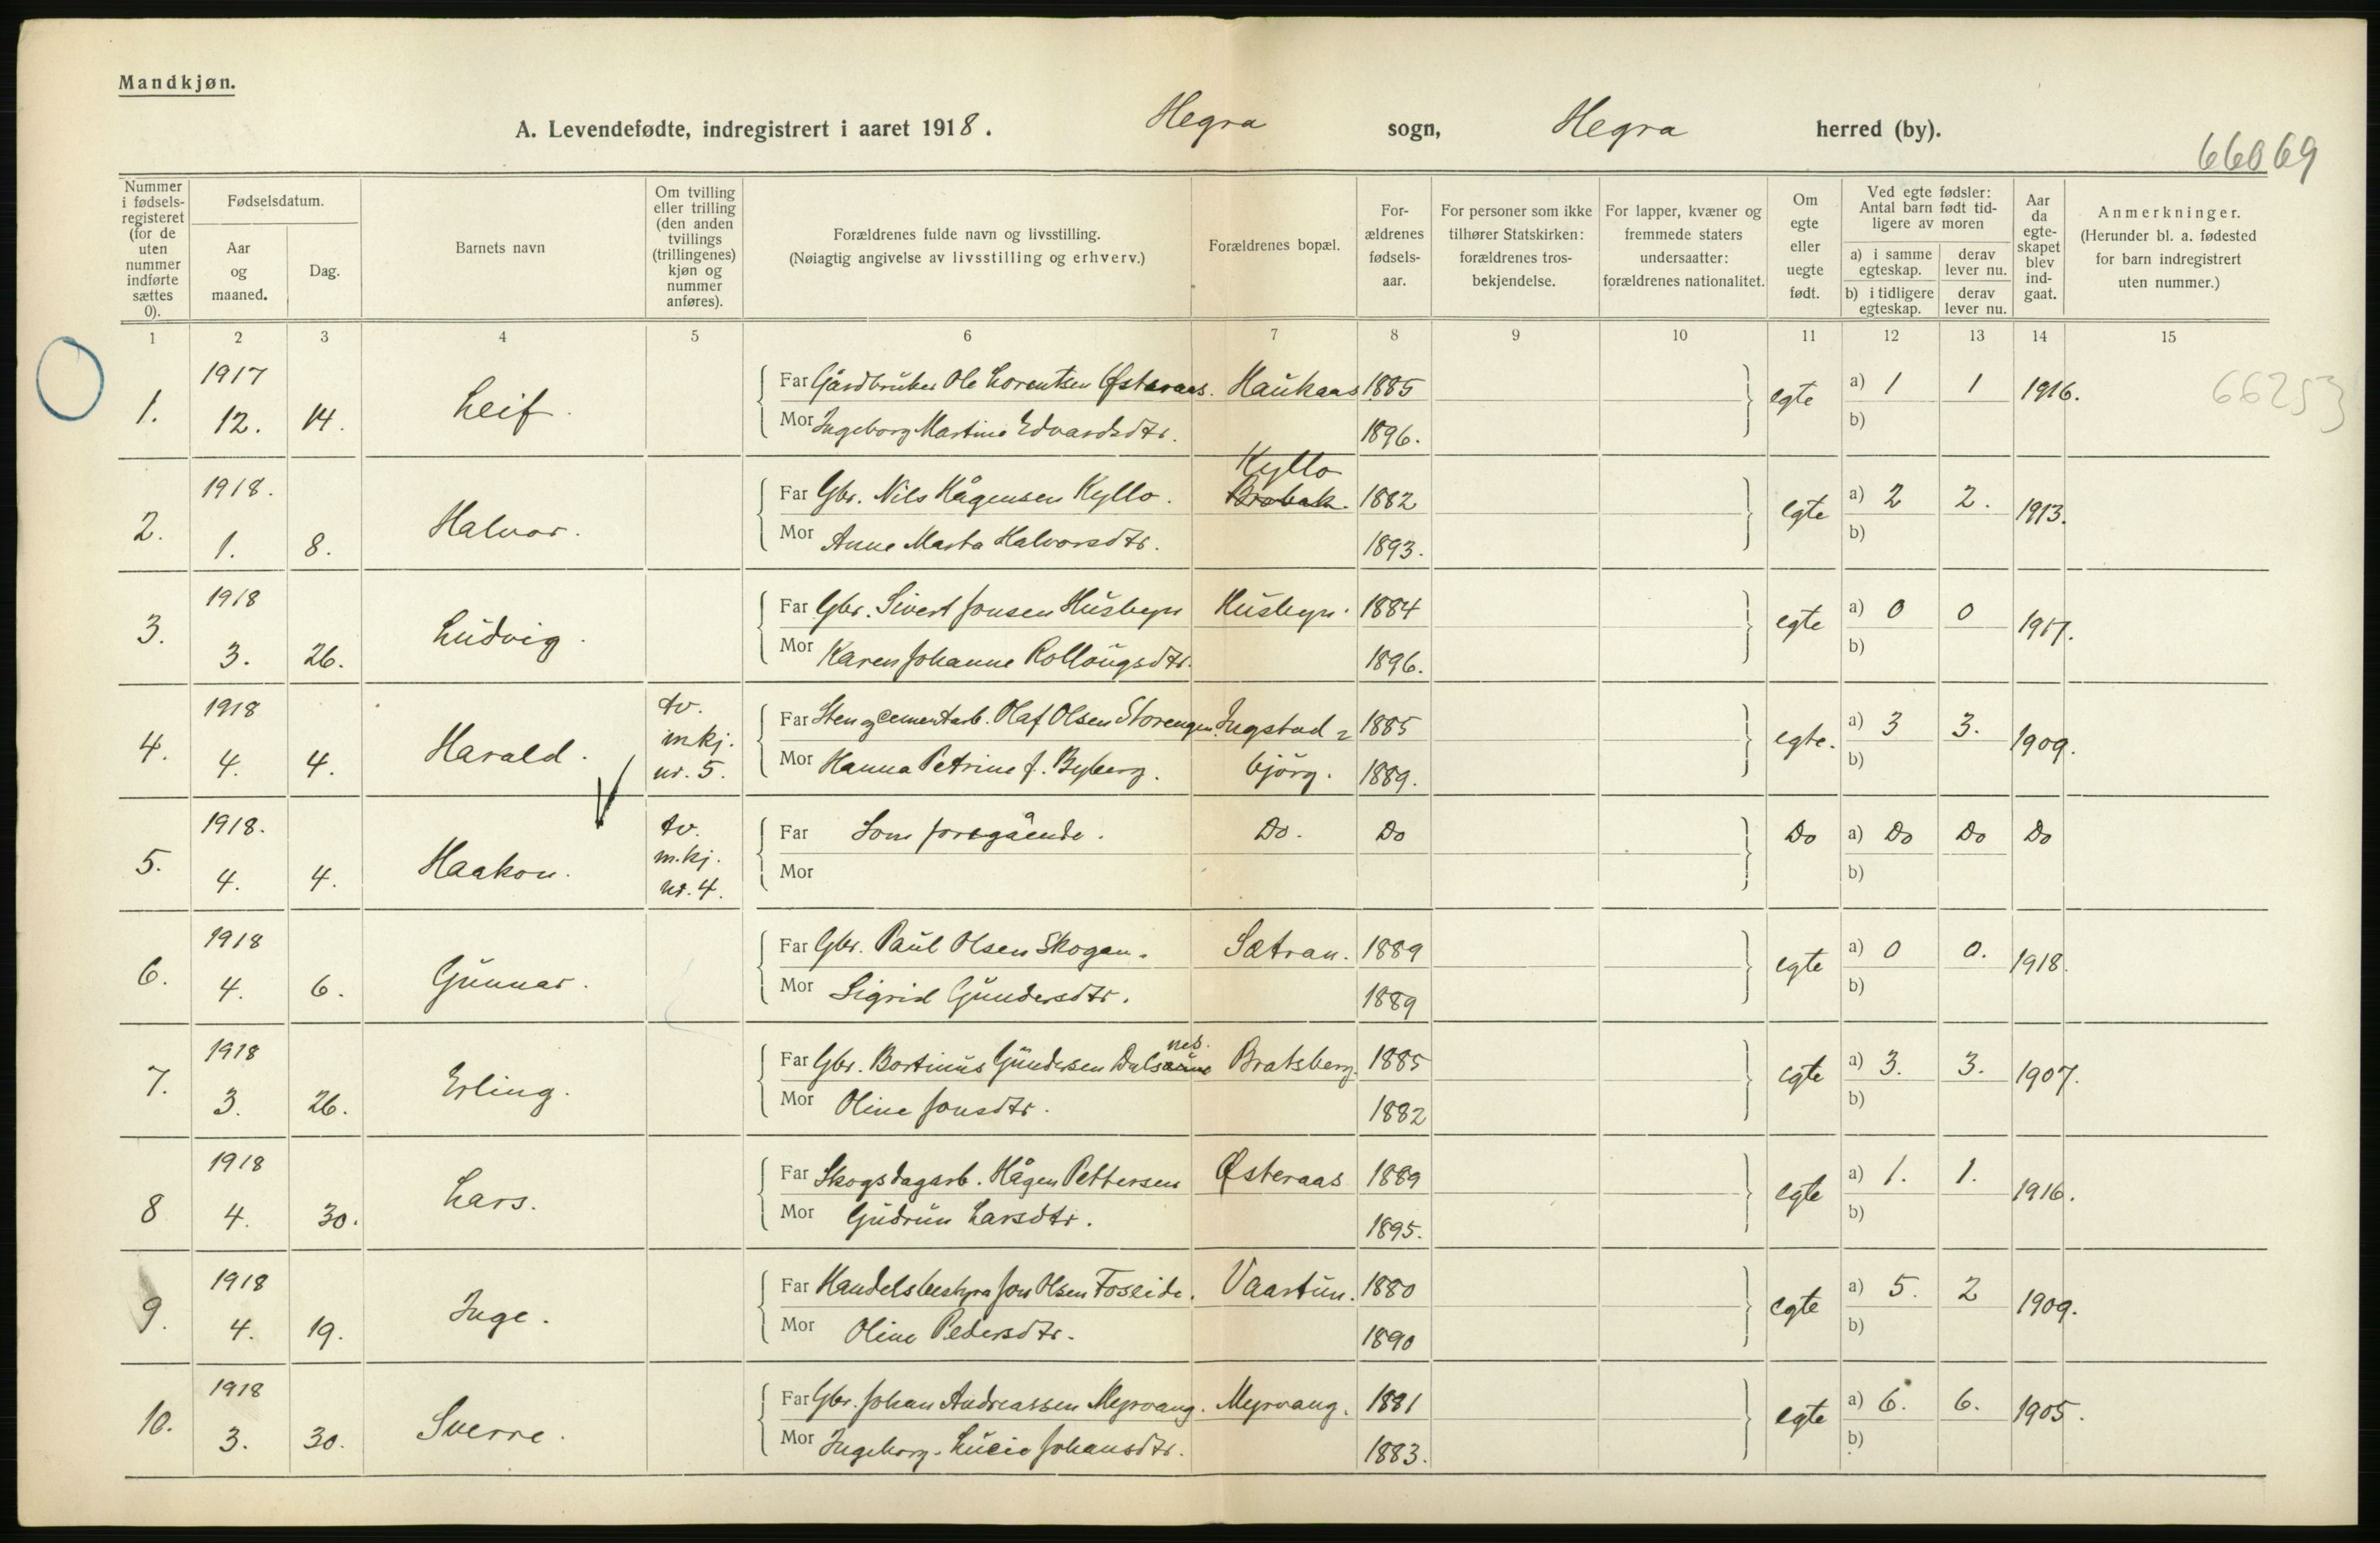 Mandkjøn.
A. Levendefødte, indregistrert i aaret 1918. Hegra sogn, Hegra herred (by).
66069
Nummer i fødselsregisteret (for de uten nummer indførte sættes 0).
Fødselsdatum.
Aar og maaned.
Dag.
Barnets navn
Om tvilling eller trilling (den anden tvillings (trillingenes) kjøn og nummer anføres).
Forældrenes fulde navn og livsstilling.
(Nøiagtig angivelse av livsstilling og erhverv.)
Forældrenes bopæl.
For-ældrenes fødsels-aar.
For personer som ikke tilhører Statskirken: forældrenes tros-bekjendelse.
For lapper, kvæner og fremmede staters undersaatter: forældrenes nationalitet.
Om egte eller uegte født.
Ved egte fødsler: Antal barn født tid-ligere av moren
a) i samme egteskap. derav lever nu.
b) i tidligere egteskap. derav lever nu.
Aar da egte-skapet blev ind-gaat.
Anmerkninger.
(Herunder bl. a. fødested for barn indregistrert uten nummer.)
1 2 3 4 5 6 7 8 9 10 11 12 13 14 15
1917 Far Gårdbruker Ole Lorentsen Østeraas. Haukaas 1885 a) 1 1 1916. 66253
1. 12. 14. Leif. Mor Ingeborg Martine Edvardsdtr. 1896. egte b)
1918. Far Gbr. Nils Hågensen Kyllo. Kyllo 1882 a) 2 2. 1913.
2. 1. 8. Halvor. Mor Anne Marta Halvorsdtr. 1893. egte b)
1918 Far Gbr. Sivert Jonsen Husbyn Husbyn. 1884 a) 0 0 1917.
3. 3. 26. Ludvig. Mor Karen Johanne Rollougsdtr. 1896. egte b)
1918 tv. Far Sten og cementarb. Olaf Olsen Storengen. Ingstad= 1885 a) 3 3. 1909.
4. 4. 4. Harald. mkj. nr. 5. Mor Hanna Petrine f. Byberg. björg. 1889. egte. b)
1918. tv. Far Som foregående. Do. Do Do a) Do Do Do
5. 4. 4. Haakon. m.kj. nr. 4. Mor b)
1918 Far Gbr. Paul Olsen Skogan. Sætran. 1889 a) 0 0. 1918.
6. 4. 6. Gunnar. Mor Sigrid Gundersdtr. 1889 egte b)
1918 Far Gbr. Bortinus Gundersen Dalsaune nes. Bratsberg. 1885 a) 3. 3. 1907.
7. 3. 26. Erling. Mor Oline Jonsdtr. 1882 egte b)
1918 Far Skogsdagarb. Hågen Pettersen Østeraas 1889 a) 1. 1. 1916.
8 4. 30. Lars. Mor Gudrun Larsdtr. 1895. egte b)
1918 Far Handelsbestyra Jon Olsen Foseide. Vaartun. 1880 a) 5. 2 1909.
9. 4. 19. Inge. Mor Oline Pedersdtr. 1890 egte b)
1918 Far Gbr. Johan Andreassen Myrvang. Myrvang. 1881 a) 6. 6. 1905.
10. 3. 30. Sverre. Mor Ingeborg Lucie Johansdtr. 1883. egte b)